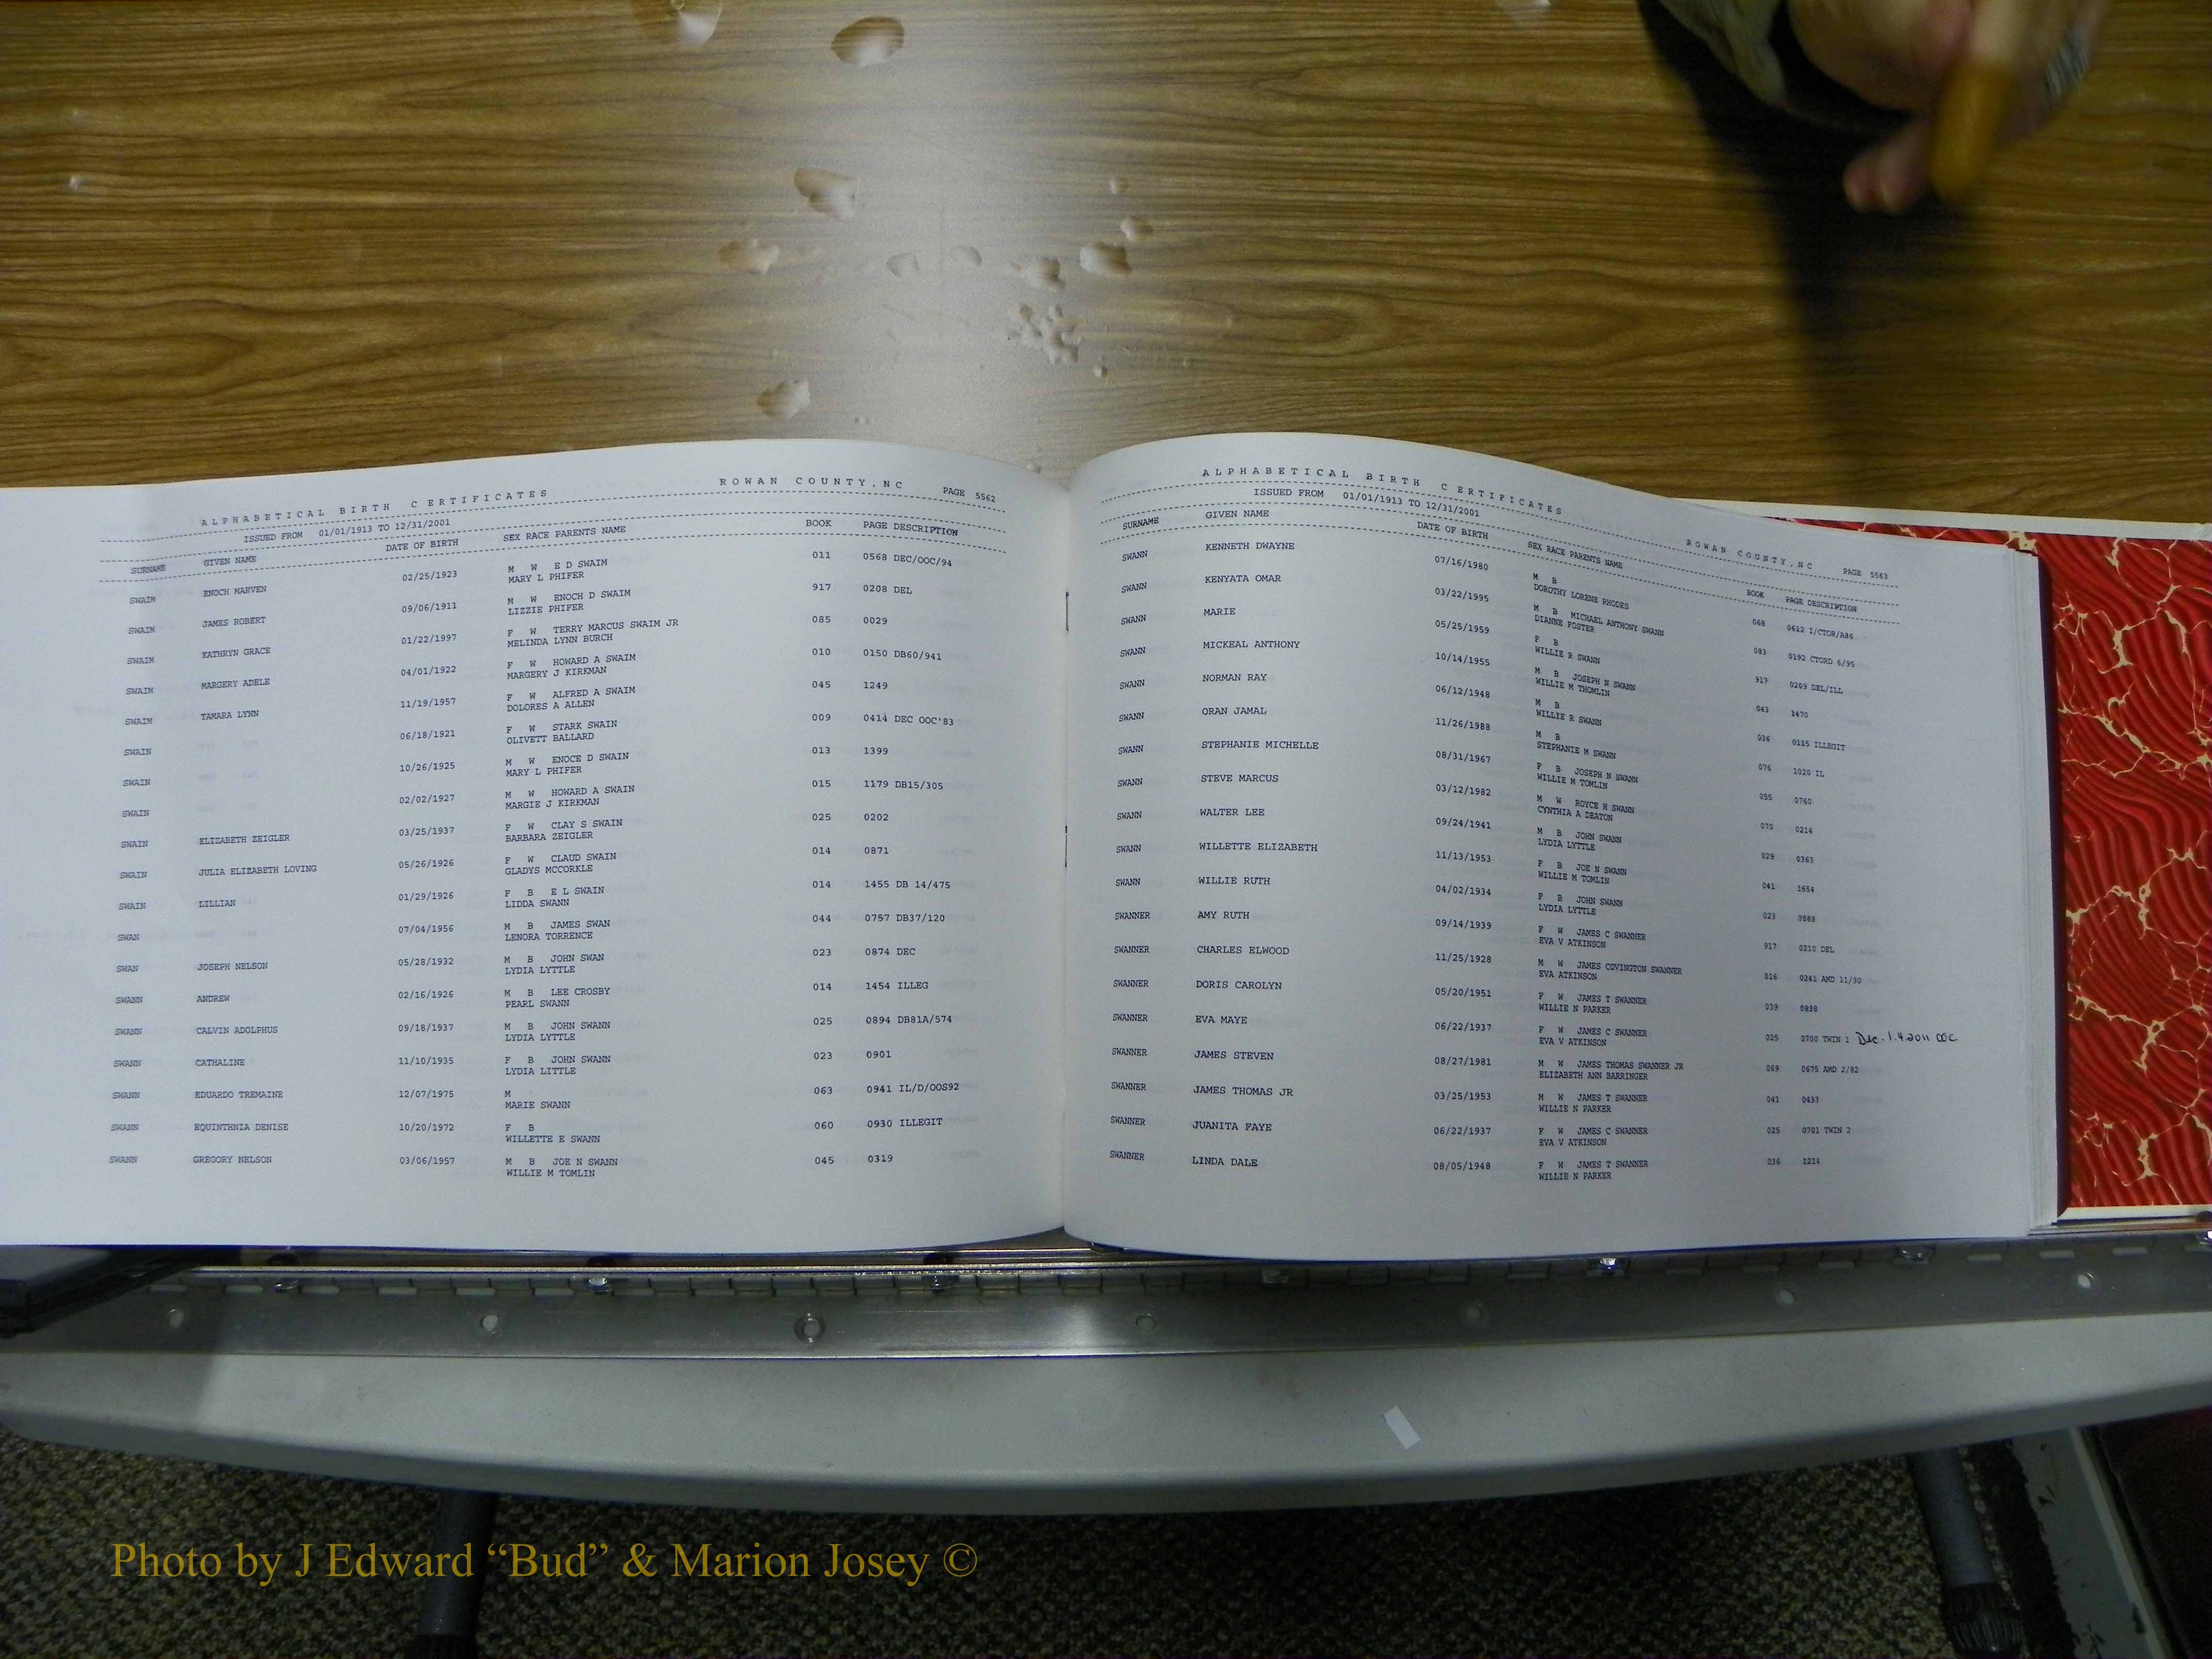 ALPHABETICAL BIRTH CERTIFICATES ROWAN COUNTY, NC PAGE 5562
ISSUED FROM 01/01/1913 TO 12/31/2001
SURNAME GIVEN NAME DATE OF BIRTH SEX RACE PARENTS NAME BOOK PAGE DESCRIPTION
SWAIM ENOCH MARVEN 02/25/1923 M W E D SWAIM 011 0568 DEC/OOC/94
MARY L PHIFER
SWAIM JAMES ROBERT 09/06/1911 M W ENOCH D SWAIM 917 0208 DEL
LIZZIE PHIFER
SWAIM KATHRYN GRACE 01/22/1997 F W TERRY MARCUS SWAIM JR 085 0029
MELINDA LYNN BURCH
SWAIM MARGERY ADELE 04/01/1922 F W HOWARD A SWAIM 010 0150 DB60/941
MARGERY J KIRKMAN
SWAIM TAMARA LYNN 11/19/1957 F W ALFRED A SWAIM 045 1249
DOLORES A ALLEN
SWAIN 06/18/1921 F W STARK SWAIN 009 0414 DEC OOC'83
OLIVETT BALLARD
SWAIN 10/26/1925 M W ENOCE D SWAIN 013 1399
MARY L PHIFER
SWAIN 02/02/1927 M W HOWARD A SWAIN 015 1179 DB15/305
MARGIE J KIRKMAN
SWAIN ELIZABETH ZEIGLER 03/25/1937 F W CLAY S SWAIN 025 0202
BARBARA ZEIGLER
SWAIN JULIA ELIZABETH LOVING 05/26/1926 F W CLAUD SWAIN 014 0871
GLADYS MCCORKLE
SWAIN LILLIAN 01/29/1926 F B E L SWAIN 014 1455 DB 14/475
LIDDA SWANN
SWAN 07/04/1956 M B JAMES SWAN 044 0757 DB37/120
LENORA TORRENCE
SWAN JOSEPH NELSON 05/28/1932 M B JOHN SWAN 023 0874 DEC
LYDIA LYTTLE
SWANN ANDREW 02/16/1926 M B LEE CROSBY 014 1454 ILLEG
PEARL SWANN
SWANN CALVIN ADOLPHUS 09/18/1937 M B JOHN SWANN 025 0894 DB81A/574
LYDIA LYTTLE
SWANN CATHALINE 11/10/1935 F B JOHN SWANN 023 0901
LYDIA LITTLE
SWANN EDUARDO TREMAINE 12/07/1975 M 063 0941 IL/D/OOS92
MARIE SWANN
SWANN EQUINTHNIA DENISE 10/20/1972 F B 060 0930 ILLEGIT
WILLETTE E SWANN
SWANN GREGORY NELSON 03/06/1957 M B JOE N SWANN 045 0319
WILLIE M TOMLIN
ALPHABETICAL BIRTH CERTIFICATES ROWAN COUNTY, NC PAGE 5563
ISSUED FROM 01/01/1913 TO 12/31/2001
SURNAME GIVEN NAME DATE OF BIRTH SEX RACE PARENTS NAME BOOK PAGE DESCRIPTION
SWANN KENNETH DWAYNE 07/16/1980 M B 068 0612 I/CTOR/A86
DOROTHY LORENE RHODES
SWANN KENYATA OMAR 03/22/1995 M B MICHAEL ANTHONY SWANN 083 0192 CTORD 6/95
DIANNE FOSTER
SWANN MARIE 05/25/1959 F B 917 0209 DEL/ILL
WILLIE R SWANN
SWANN MICKEAL ANTHONY 10/14/1955 M B JOSEPH N SWANN 043 1470
WILLIE M THOMLIN
SWANN NORMAN RAY 06/12/1948 M B 036 0115 ILLEGIT
WILLIE R SWANN
SWANN ORAN JAMAL 11/26/1988 M B 076 1020 IL
STEPHANIE M SWANN
SWANN STEPHANIE MICHELLE 08/31/1967 F B JOSEPH N SWANN 055 0760
WILLIE M TOMLIN
SWANN STEVE MARCUS 03/12/1982 M W ROYCE H SWANN 070 0214
CYNTHIA A DEATON
SWANN WALTER LEE 09/24/1941 M B JOHN SWANN 029 0363
LYDIA LYTTLE
SWANN WILLETTE ELIZABETH 11/13/1953 F B JOE N SWANN 041 1654
WILLIE M TOMLIN
SWANN WILLIE RUTH 04/02/1934 F B JOHN SWANN 023 0868
LYDIA LYTTLE
SWANNER AMY RUTH 09/14/1939 F W JAMES C SWANNER 917 0210 DEL
EVA V ATKINSON
SWANNER CHARLES ELWOOD 11/25/1928 M W JAMES COVINGTON SWANNER 016 0241 AMD 11/90
EVA ATKINSON
SWANNER DORIS CAROLYN 05/20/1951 F W JAMES T SWANNER 039 0838
WILLIE N PARKER
SWANNER EVA MAYE 06/22/1937 F W JAMES C SWANNER 025 0700 TWIN 1 Dec. 1.4.2011 OOC
EVA V ATKINSON
SWANNER JAMES STEVEN 08/27/1981 M W JAMES THOMAS SWANNER JR 069 0675 AMD 2/82
ELIZABETH ANN BARRINGER
SWANNER JAMES THOMAS JR 03/25/1953 M W JAMES T SWANNER 041 0433
WILLIE N PARKER
SWANNER JUANITA FAYE 06/22/1937 F W JAMES C SWANNER 025 0701 TWIN 2
EVA V ATKINSON
SWANNER LINDA DALE 08/05/1948 F W JAMES T SWANNER 036 1214
WILLIE N PARKER
Photo by J Edward “Bud” & Marion Josey ©